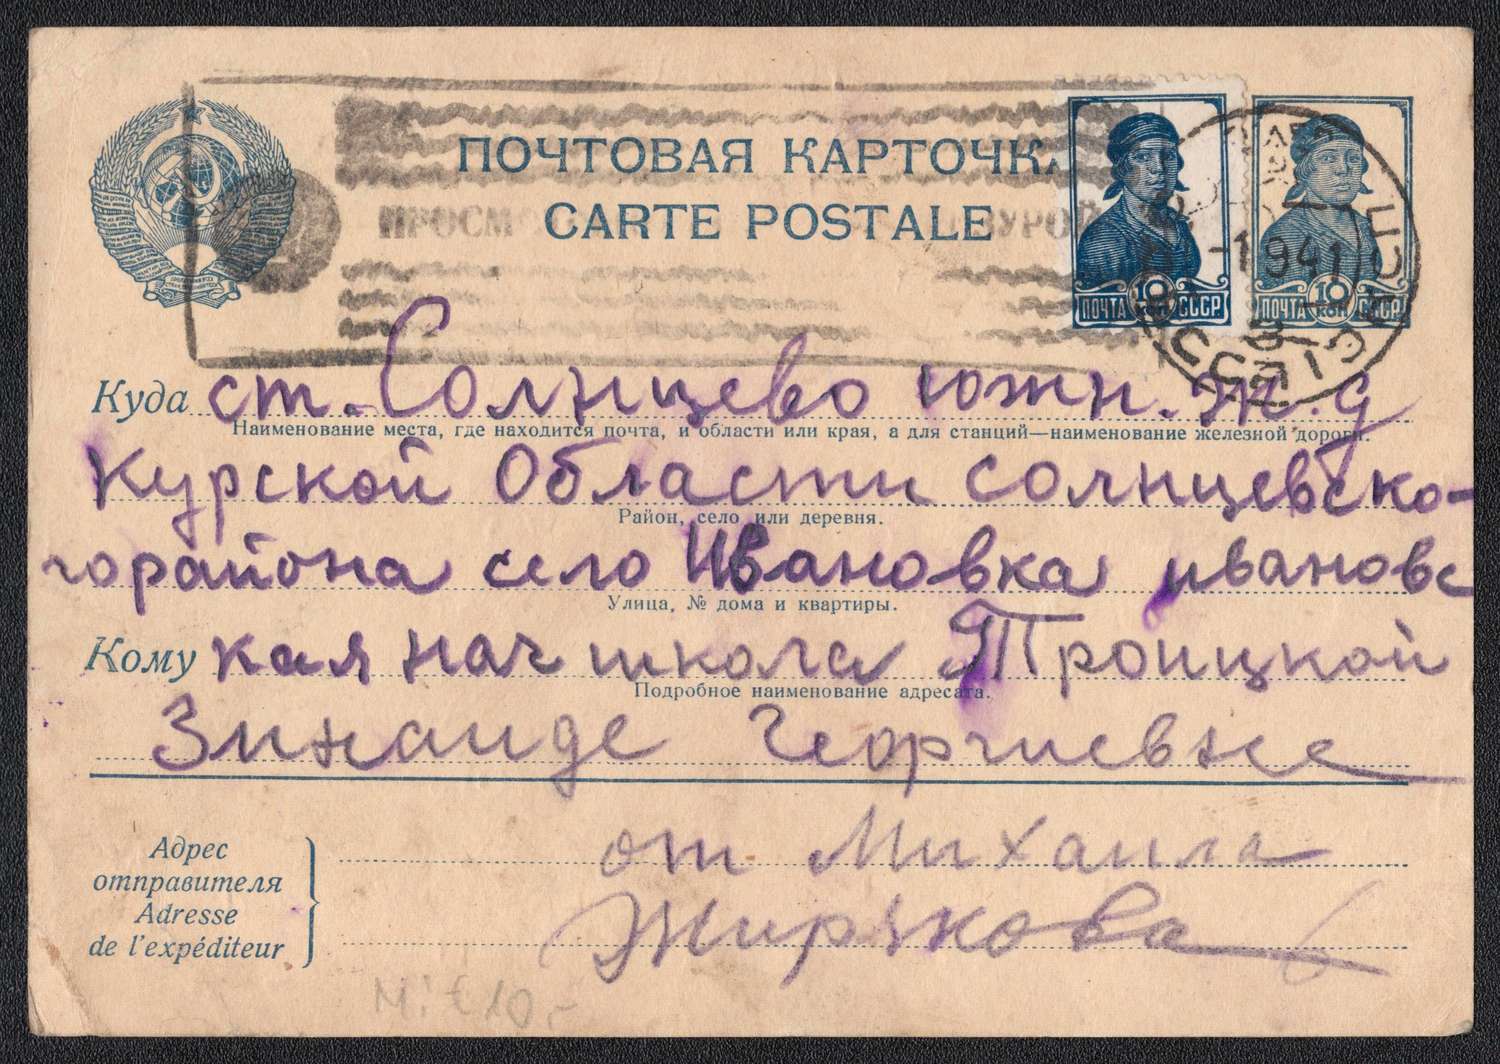 ПОЧТОВАЯ КАРТОЧКА
CARTE POSTALE
ПРОСМ ЗУРОЙ
ПОЧТА 10 КОП СССР
ПОЧТА 10 КОП СССР
-1941
Куда ст. Солнцево южн. ж. д
Наименование места, где находится почта, и области или края, а для станций—наименование железной дороги.
Курской Области Солнцевско-
Район, село или деревня.
горайона село Ивановка ивановс
Улица, № дома и квартиры.
Кому кая нач школа Троицкой
Подробное наименование адресата.
Зинаиде Георгиевне
Адрес
отправителя
Adresse
de l'expéditeur
от Михаила
Жирякова